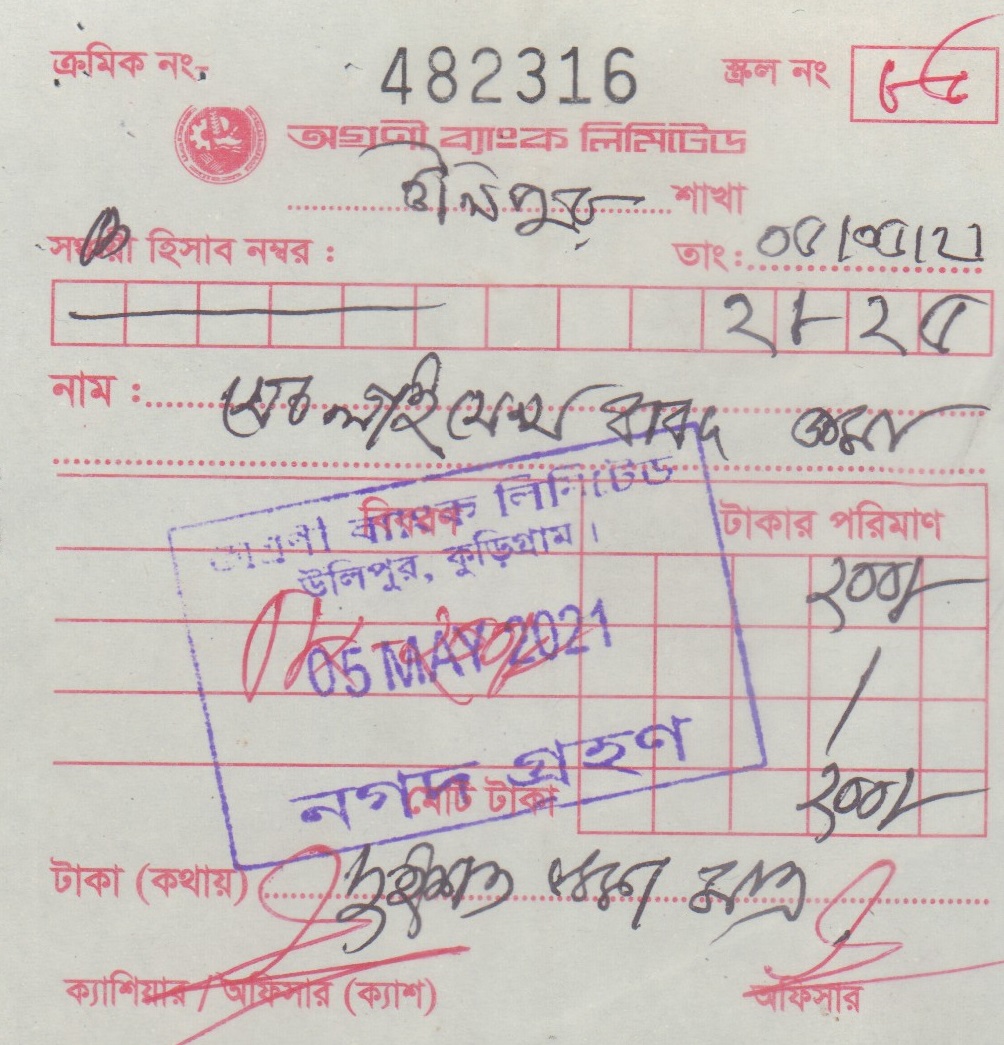 ক্রমিক নং- 482316 স্ক্রল নং
অগ্রণী ব্যাংক লিমিটেড
উলিপুর শাখা
সঞ্চয়ী হিসাব নম্বর :
তাং: ০৫/০৫/২১
নাম : বাবদ জমা
অগ্রণী ব্যাংক লিমিটেড
বিবরণ টাকার পরিমাণ
উলিপুর, কুড়িগ্রাম।
২০০/-
05 MAY 2021
নগদ গ্রহণ
মোট টাকা ২০০/-
টাকা (কথায়) দুইশত টাকা মাত্র
ক্যাশিয়ার / অফিসার (ক্যাশ) অফিসার